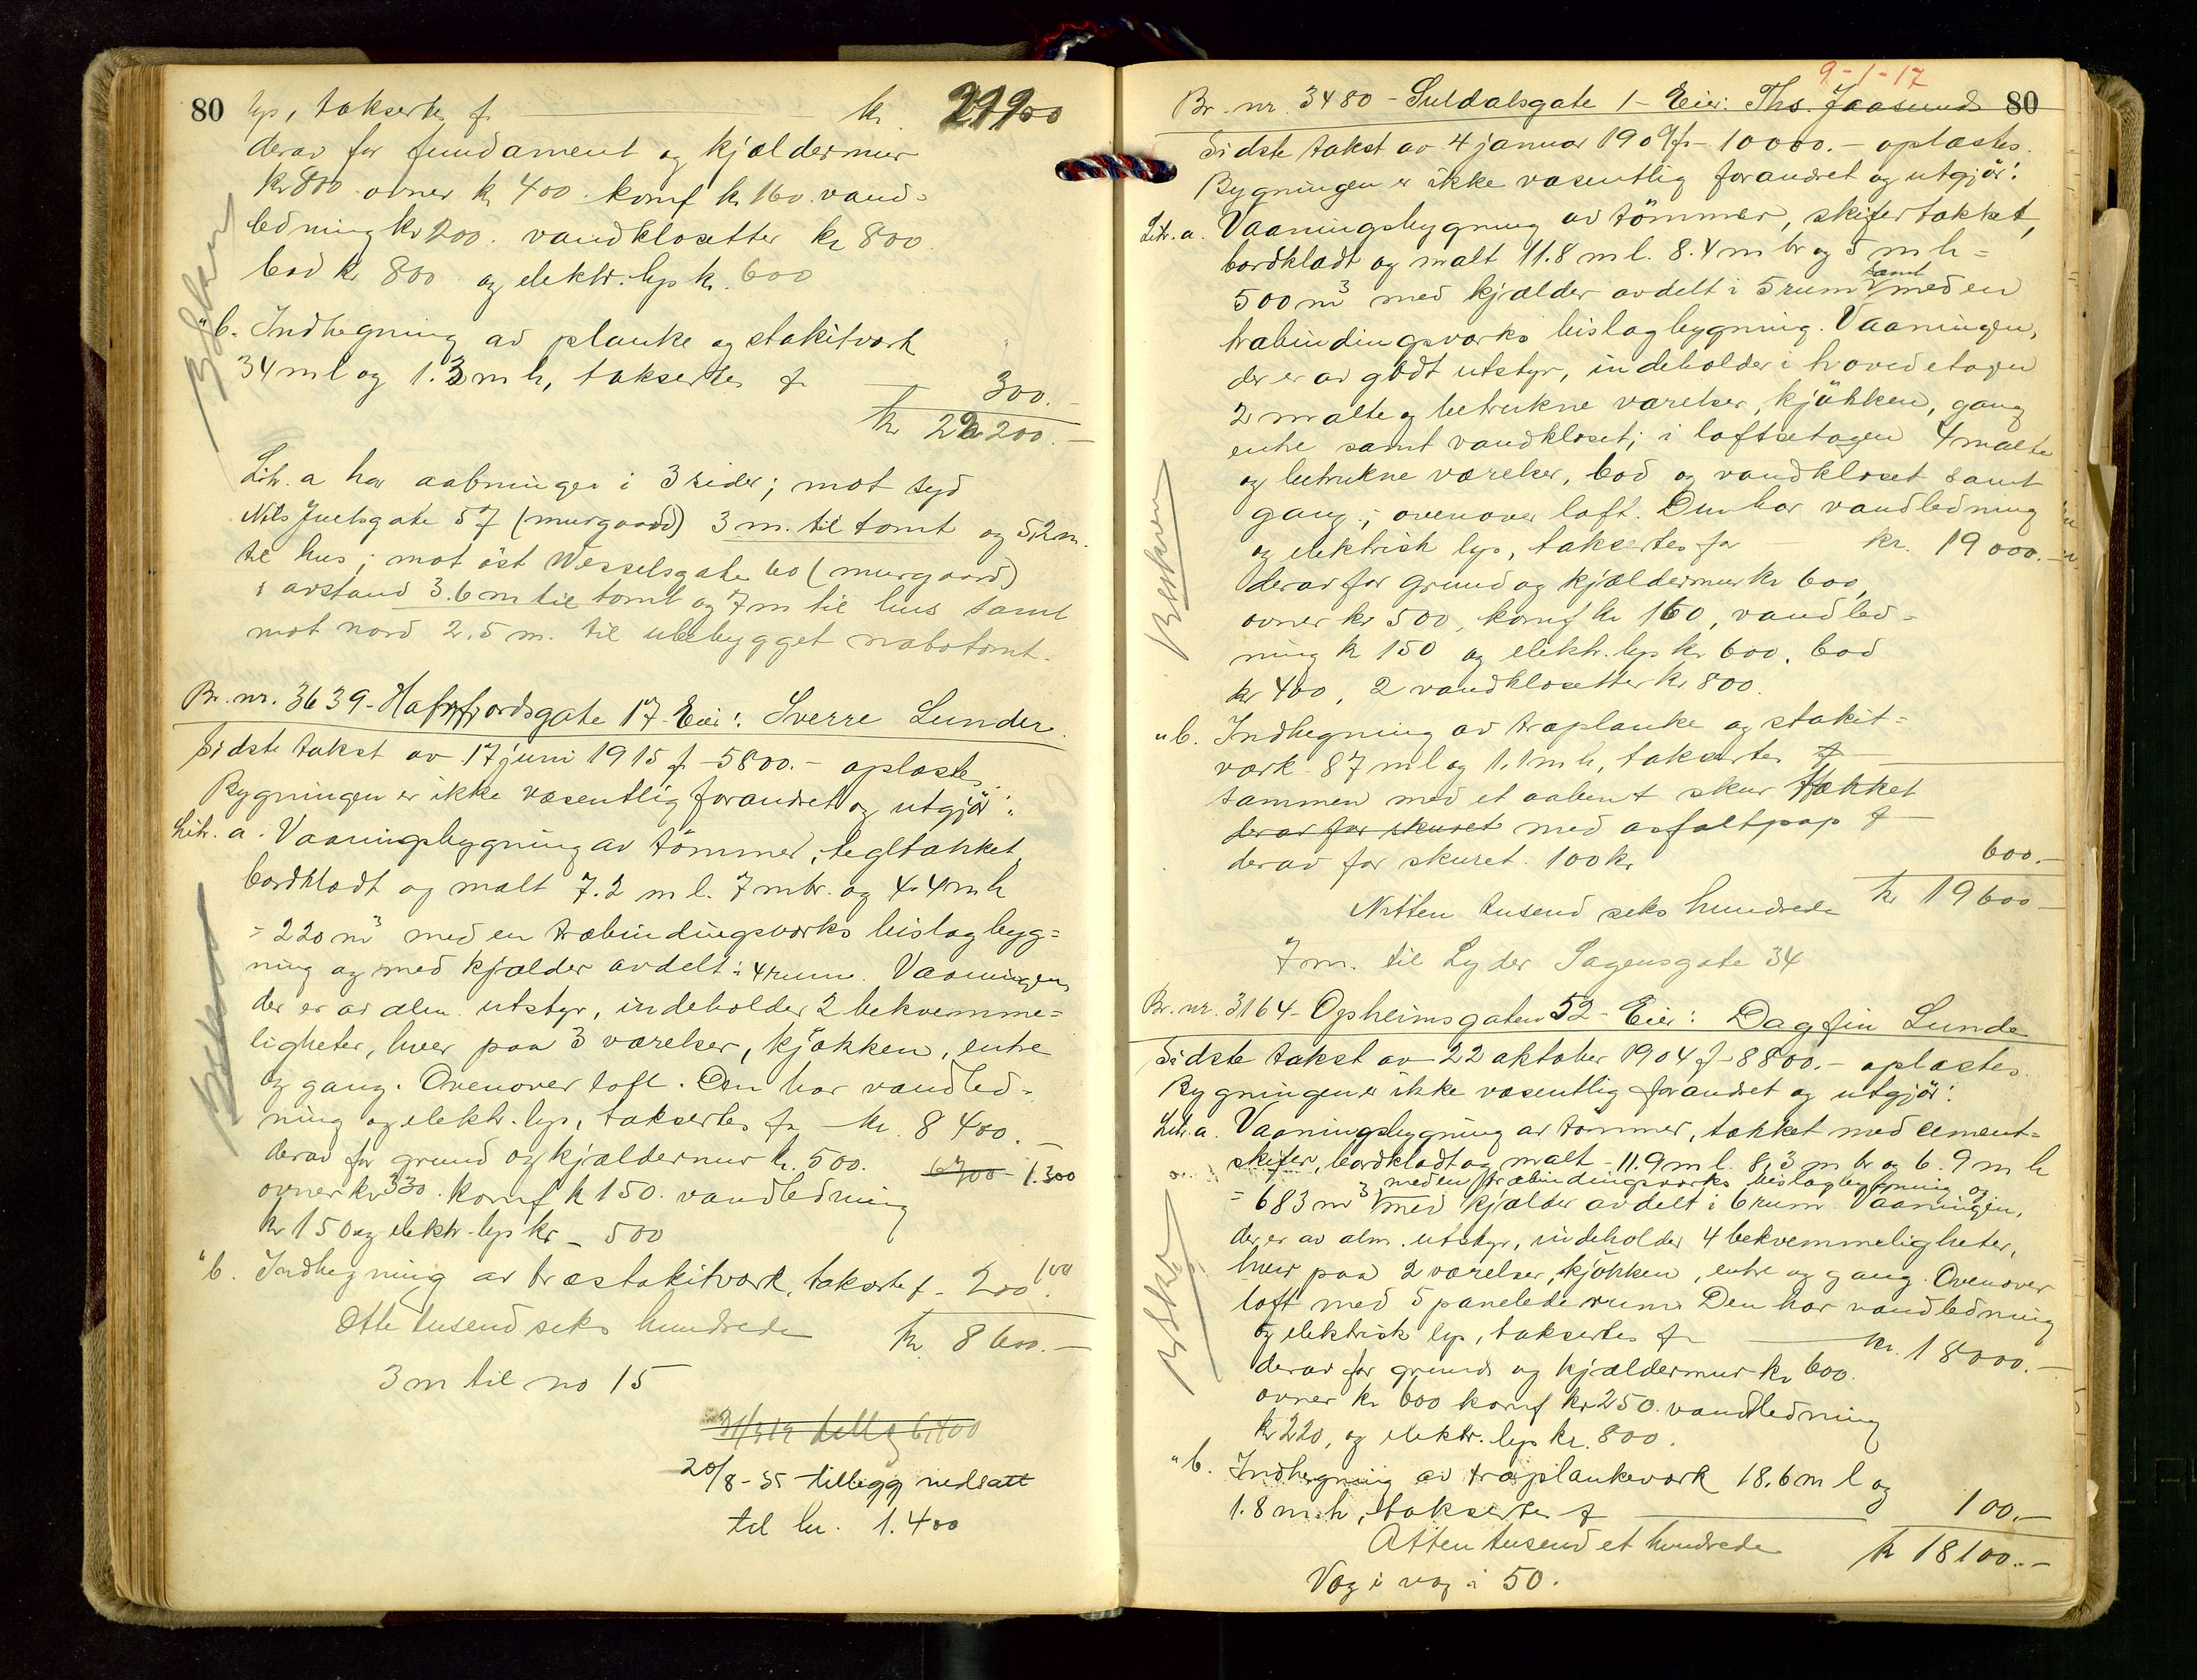 80 lys, takseres f. kr. 21900
derav for fundament og kjældermur
kr 800 ovner kr 400 komf kr 160 vand=
ledning kr 200. vandklosetter kr 800
bad kr 800 og elektr. lys kr. 600
"b. Indhegning av planke og stakitverk
34 m l og 1.3 m h, takseres f 300.-
kr 22200.-
Litr. a har aabninger i 3 sider; mot syd
Nils Juelsgate 57 (murgaard) 3 m. til tomt og 5,2 m.
til hus; mot öst Wesselsgate 60 (murgaard)
i avstand 3.6 m til tomt og 7 m til hus samt
mot nord 2.5 m. til ubebygget nabotomt.
Br. nr. 3639 - Hafrsfjordsgate 17 - Eier: Sverre Lunder.
Sidste takst av 17 juni 1915 f - 5800.- oplæstes.
Bygningen er ikke væsentlig forandret og utgjör:
Litr. a. Vaaningsbygning av tömmer, tegltækket,
bordklædt og malt 7.2 m l. 7 m br. og 4.4 m h
= 220 m³ med en træbindingsverks bislagbyg=
ning og med kjælder avdelt i 4 rum. Vaaningen,
der er av alm. utstyr, indeholder 2 bekvemme=
ligheter, hver paa 3 værelser, kjökken, entre
og gang. Ovenover loft. Den har vandled=
ning og elektr. lys, takseres for kr. 8400.-
derav for grund og kjældermur kr. 500. 6700 1.300
ovner kr 330. komf kr 150. vandledning
kr 150 og elektr. lys kr - 500
"b. Indhegning av træstakitverk, takseres f - 200. 100
Otte tusend seks hundrede kr. 8600.-
3 m til no 15
20/8-35 tillegg nedsatt
til kr. 1.400
9-1-17
Br. nr. 3480 - Suldalsgate 1 - Eier: Ths. Jaasund 80
Sidste takst av 4 januar 1909 fr - 10000.- oplæstes.
Bygningen er ikke væsentlig forandret og utgjör:
Litr. a. Vaaningsbygning av tömmer, skifertækket,
bordklædt og malt 11.8 m l. 8.4 m br og 5 m h =
500 m³ med kjælder avdelt i 5 rum samt med en
træbindingsverks bislagbygning. Vaaningen,
der er av godt utstyr, indeholder i hovedetagen
2 malte og betrukne værelser, kjökken, gang
entre samt vandkloset; i loftsetagen 4 malte
og betrukne værelser, bod og vandkloset samt
gang; ovenover loft. Den har vandledning
og elektrisk lys, takseres for kr. 19000.-
derav for grund og kjældermur kr 600,
ovner kr 500, komf kr 160, vandled=
ning kr 150 og elektr. lys kr 600, bad
kr 400, 2 vandklosetter kr 800.
"b. Indhegning av træplanke og stakit=
værk 87 m l og 1.1 m h, takseres f
sammen med et aabent skur tækket
derav for skuret med asfaltpap f
derav for skuret. 100 kr 600.-
Nitten tusend seks hundrede kr 19600-
7 m. til Lyder Sagensgate 34
Br. nr. 3164 - Opheimsgaten 52 - Eier: Dagfin Lunde
Sidste takst av 22 oktober 1904 f - 8800.- oplæstes.
Bygningen er ikke væsentlig forandret og utgjör:
Litr. a. Vaaningsbygning av tömmer, tækket med cement=
skifer, bordklædt og malt - 11.9 m l. 8,3 m br og 6.9 m h
med en træbindingsværks bislagbygning og
= 683 m³ med kjælder avdelt i 6 rum. Vaaningen,
der er av alm. utstyr, indeholder 4 bekvemmeligheter,
hver paa 2 værelser, kjökken, entre og gang. Ovenover
loft med 5 panelede rum. Den har vandledning
og elektrisk lys, takseres for kr. 18000.-
derav for grund og kjældermur kr 600.
ovner kr 600 komf kr 250. vandledning
kr 220, og elektr. lys kr. 800.
"b. Indhegning av træplankeverk 18.6 m l og
1.8 m h, takseres f 100.-
Atten tusend et hundrede kr 18100.-
Væg i væg i 50.